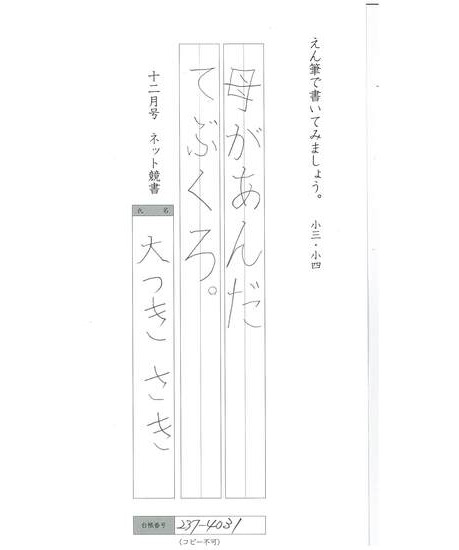 えん筆で書いてみましょう。 小三・小四
母があんだ
てぶくろ。
十二月号 ネット競書
氏 名
大つき さき
台帳番号 237-4031
(コピー不可)